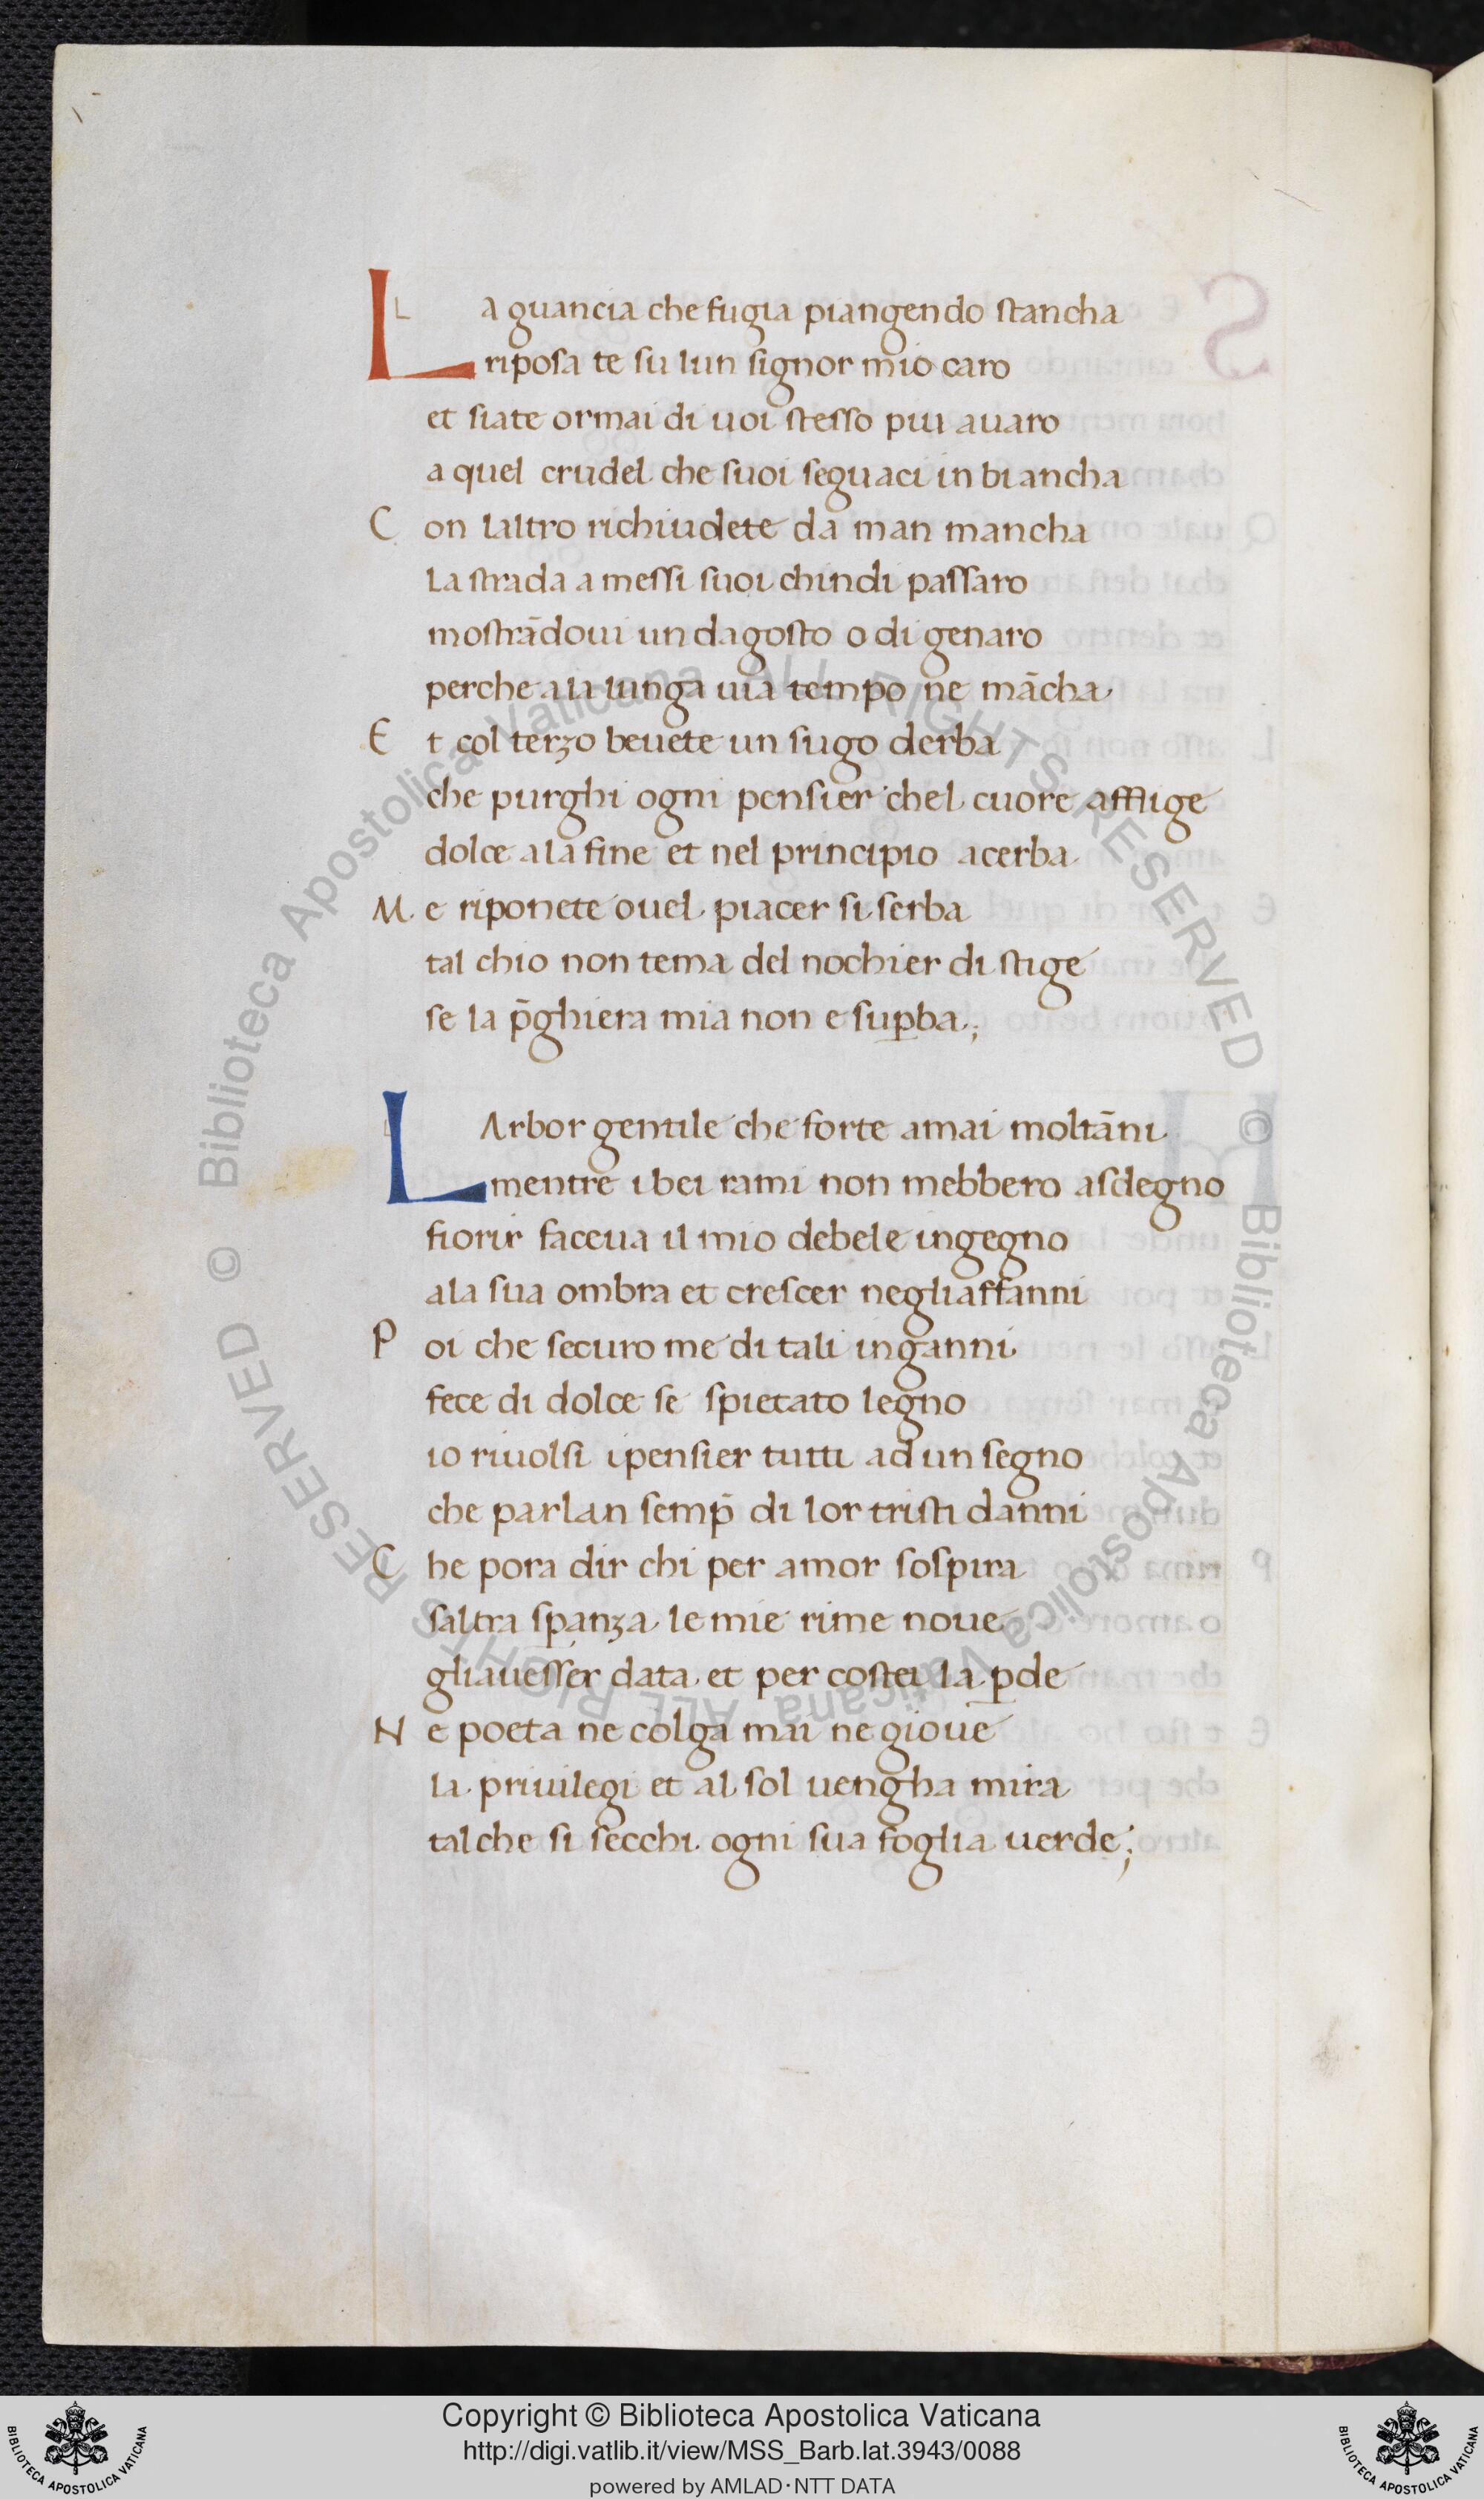 La guancia che fugia piangendo stancha
riposa te su lun signor mio caro
et siate ormai di uoi stesso piu auaro
a quel crudel che suoi seguaci in biancha
Con laltro richiudete da man mancha
la strada a messi suoi chindi passaro
mostrādoui un dagosto o di genaro
perche ala lunga uia tempo ne mācha
Et col terzo beuete un sugo derba
che purghi ogni pensier chel cuore afflige
dolce ala fine et nel principio acerba
Me riponete ouel piacer si serba
tal chio non tema del nochier di stige
se la p̄ghiera mia non e sup̱ba;
LArbor gentile che forte amai moltāni
mentre i bei rami non mebbero asdegno
fiorir faceua il mio debele ingegno
ala sua ombra et crescer negliaffanni
Poi che securo me di tali inganni
fece di dolce se spietato legno
io riuolsi i pensier tutti ad un segno
che parlan semp̄ di lor tristi danni
Che pora dir chi per amor sospira
saltra sp̱anza le mie rime noue
gliauesser data et per costei la p̱de
Ne poeta ne colga mai ne gioue
la priuilegi et al sol uengha mira
talche si secchi ogni sua foglia uerde;
© Biblioteca Apostolica Vaticana ALL RIGHTS RESERVED
© Biblioteca Apostolica Vaticana ALL RIGHTS RESERVED
BIBLIOTECA APOSTOLICA VATICANA
Copyright © Biblioteca Apostolica Vaticana
http://digi.vatlib.it/view/MSS_Barb.lat.3943/0088
powered by AMLAD·NTT DATA
BIBLIOTECA APOSTOLICA VATICANA